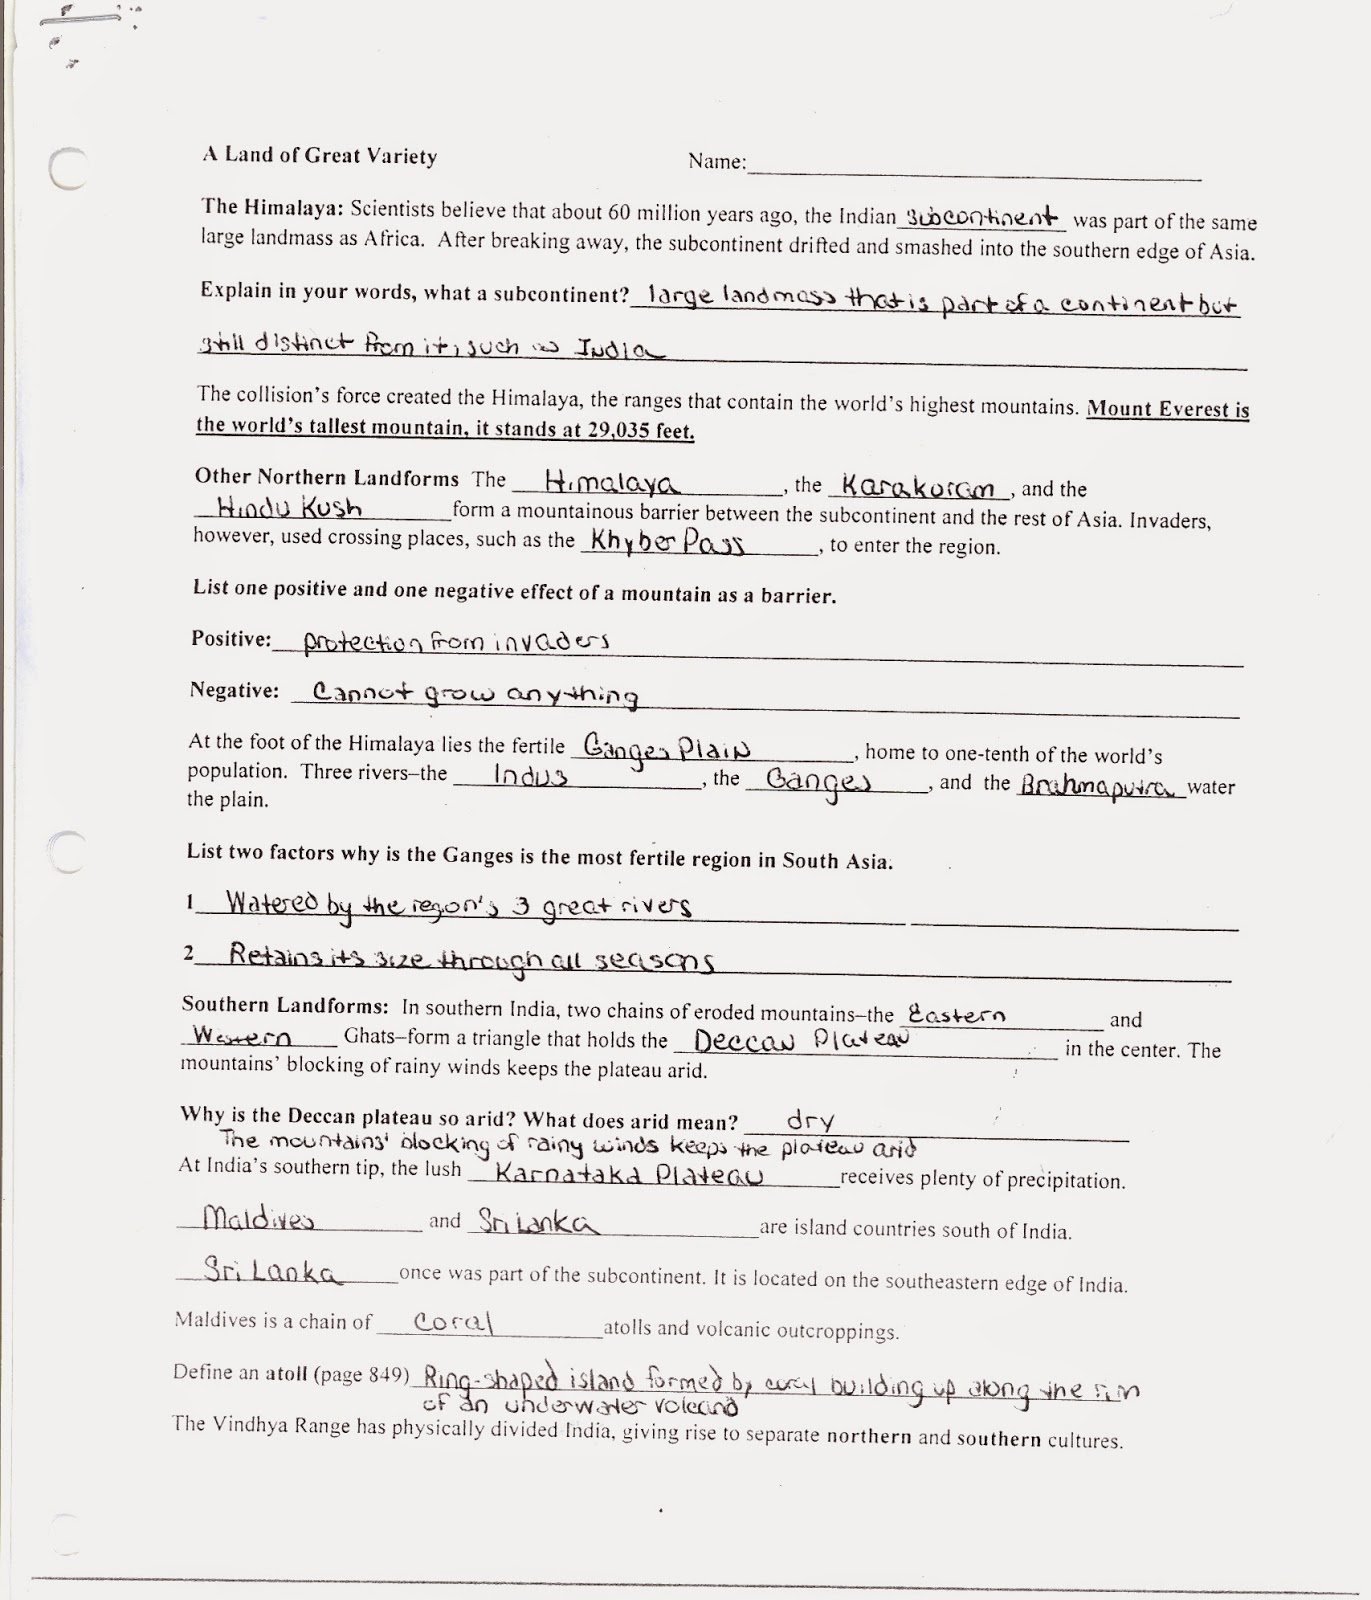 A Land of Great Variety Name:
The Himalaya: Scientists believe that about 60 million years ago, the Indian subcontinent was part of the same
large landmass as Africa. After breaking away, the subcontinent drifted and smashed into the southern edge of Asia.
Explain in your words, what a subcontinent? large landmass that is part of a continent but
still distinct from it, such as India
The collision's force created the Himalaya, the ranges that contain the world's highest mountains. Mount Everest is
the world's tallest mountain, it stands at 29,035 feet.
Other Northern Landforms The Himalaya, the Karakoram, and the
Hindu Kush form a mountainous barrier between the subcontinent and the rest of Asia. Invaders,
however, used crossing places, such as the Khyber Pass, to enter the region.
List one positive and one negative effect of a mountain as a barrier.
Positive: protection from invaders
Negative: Cannot grow anything
At the foot of the Himalaya lies the fertile Ganges Plain, home to one-tenth of the world's
population. Three rivers–the Indus, the Ganges, and the Brahmaputra water
the plain.
List two factors why is the Ganges is the most fertile region in South Asia.
1 Watered by the regon's 3 great rivers
2 Retains its size through all seasons
Southern Landforms: In southern India, two chains of eroded mountains–the Eastern and
Western Ghats–form a triangle that holds the Deccan Plateau in the center. The
mountains' blocking of rainy winds keeps the plateau arid.
Why is the Deccan plateau so arid? What does arid mean? dry
The mountains' blocking of rainy winds keeps the plateau arid
At India's southern tip, the lush Karnataka Plateau receives plenty of precipitation.
Maldives and Sri Lanka are island countries south of India.
Sri Lanka once was part of the subcontinent. It is located on the southeastern edge of India.
Maldives is a chain of coral atolls and volcanic outcroppings.
Define an atoll (page 849) Ring-shaped island formed by coral building up along the rim
of an underwater volcano
The Vindhya Range has physically divided India, giving rise to separate northern and southern cultures.